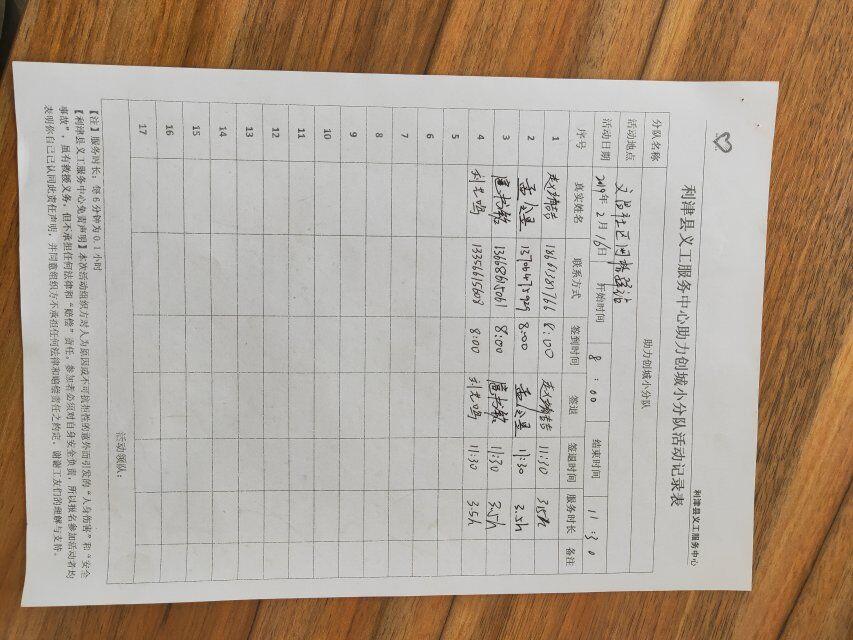 利津县义工服务中心
利津县义工服务中心助力创城小分队活动记录表
分队名称 助力创城小分队
活动地点 文昌社区网格驿站
活动日期 2019年2月16日 开始时间 8:00 结束时间 11:30
序号 真实姓名 联系方式 签到时间 签退 签退时间 服务时长 备注
1 18661381766 8:00 11:30 3.5h
2 8:00 11:30 3.5h
3 13668615061 8:00 11:30 3.5h
4 13356615608 8:00 11:30 3.5h
5
6
7
8
9
10
11
12
13
14
15
16
17
活动领队：
【注】服务时长：每6分钟为0.1小时
【利津县义工服务中心免责声明】本次活动组织方对人为原因或不可抗担性的意外而引发的“人身伤害”和“安全
事故”，虽有救援义务，但不承担任何法律和“赔偿”责任，参加者必须对自身安全负责，所以报名参加活动者均
表明你自己已认同此责任声明，并同意组织方不承担任何法律和赔偿责任之约定，谢谢工友们的理解与支持。